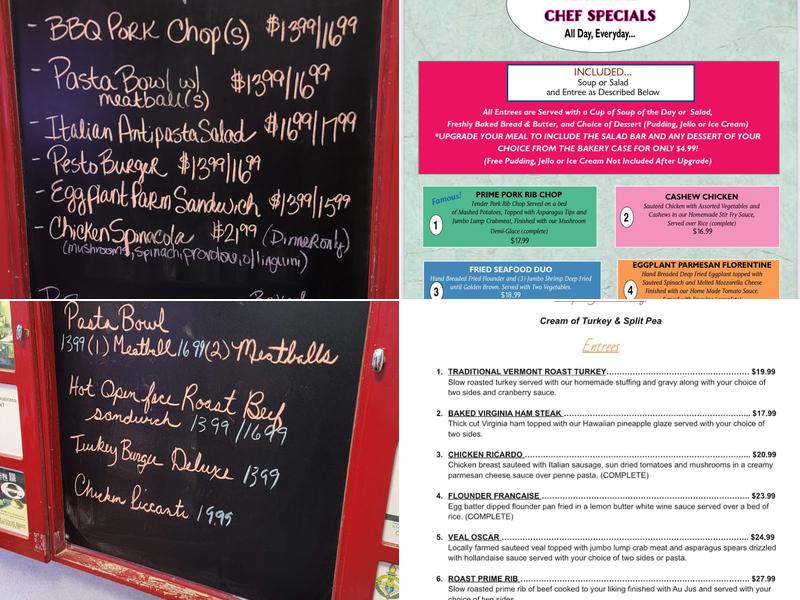 - BBQ PORK Chop(s) $1399/1699
- Pasta Bowl w/ $1399/1699
meatball(s)
- Italian Antipasta Salad $1699/1799
- Pesto Burger $1399/1699
- Eggplant Parm Sandwich $1399/1599
- Chicken Spinacola $2199 (Dinner Only)
(mushrooms, spinach, provolone, o/linguini)
CHEF SPECIALS
All Day, Everyday...
INCLUDED...
Soup or Salad
and Entree as Described Below
All Entrees are Served with a Cup of Soup of the Day or Salad,
Freshly Baked Bread & Butter, and Choice of Dessert (Pudding, Jello or Ice Cream)
*UPGRADE YOUR MEAL TO INCLUDE THE SALAD BAR AND ANY DESSERT OF YOUR
CHOICE FROM THE BAKERY CASE FOR ONLY $4.99!
(Free Pudding, Jello or Ice Cream Not Included After Upgrade)
Famous!
1
PRIME PORK RIB CHOP
Tender Pork Rib Chop Served on a bed
of Mashed Potatoes, Topped with Asparagus Tips and
Jumbo Lump Crabmeat, Finished with our Mushroom
Demi-Glace (complete)
$17.99
2
CASHEW CHICKEN
Sauteed Chicken with Assorted Vegetables and
Cashews in our Homemade Stir Fry Sauce,
Served over Rice (complete)
$16.99
3
FRIED SEAFOOD DUO
Hand Breaded Fried Flounder and (3) Jumbo Shrimp Deep Fried
until Golden Brown. Served with Two Vegetables.
$18.99
4
EGGPLANT PARMESAN FLORENTINE
Hand Breaded Deep Fried Eggplant topped with
Sauteed Spinach and Melted Mozzarella Cheese
Finished with our Home Made Tomato Sauce.
Pasta Bowl
1399 (1) Meatball 1699 (2) Meatballs
Hot Open face Roast Beef
sandwich 1399/1699
Turkey Burger Deluxe 1399
Chicken Piccante 19.99
Cream of Turkey & Split Pea
Entrees
1. TRADITIONAL VERMONT ROAST TURKEY………………………………… $19.99
Slow roasted turkey served with our homemade stuffing and gravy along with your choice of
two sides and cranberry sauce.
2. BAKED VIRGINIA HAM STEAK ………………………………………... $17.99
Thick cut Virginia ham topped with our Hawaiian pineapple glaze served with your choice of
two sides.
3. CHICKEN RICARDO ………………………………………………... $20.99
Chicken breast sauteed with Italian sausage, sun dried tomatoes and mushrooms in a creamy
parmesan cheese sauce over penne pasta. (COMPLETE)
4. FLOUNDER FRANCAISE ………………………………………………… $23.99
Egg batter dipped flounder pan fried in a lemon butter white wine sauce served over a bed of
rice. (COMPLETE)
5. VEAL OSCAR ………………………………………………………….. $24.99
Locally farmed sauteed veal topped with jumbo lump crab meat and asparagus spears drizzled
with hollandaise sauce served with your choice of two sides or pasta.
6. ROAST PRIME RIB ……………………………………………………... $27.99
Slow roasted prime rib of beef cooked to your liking finished with Au Jus and served with your
choice of two sides